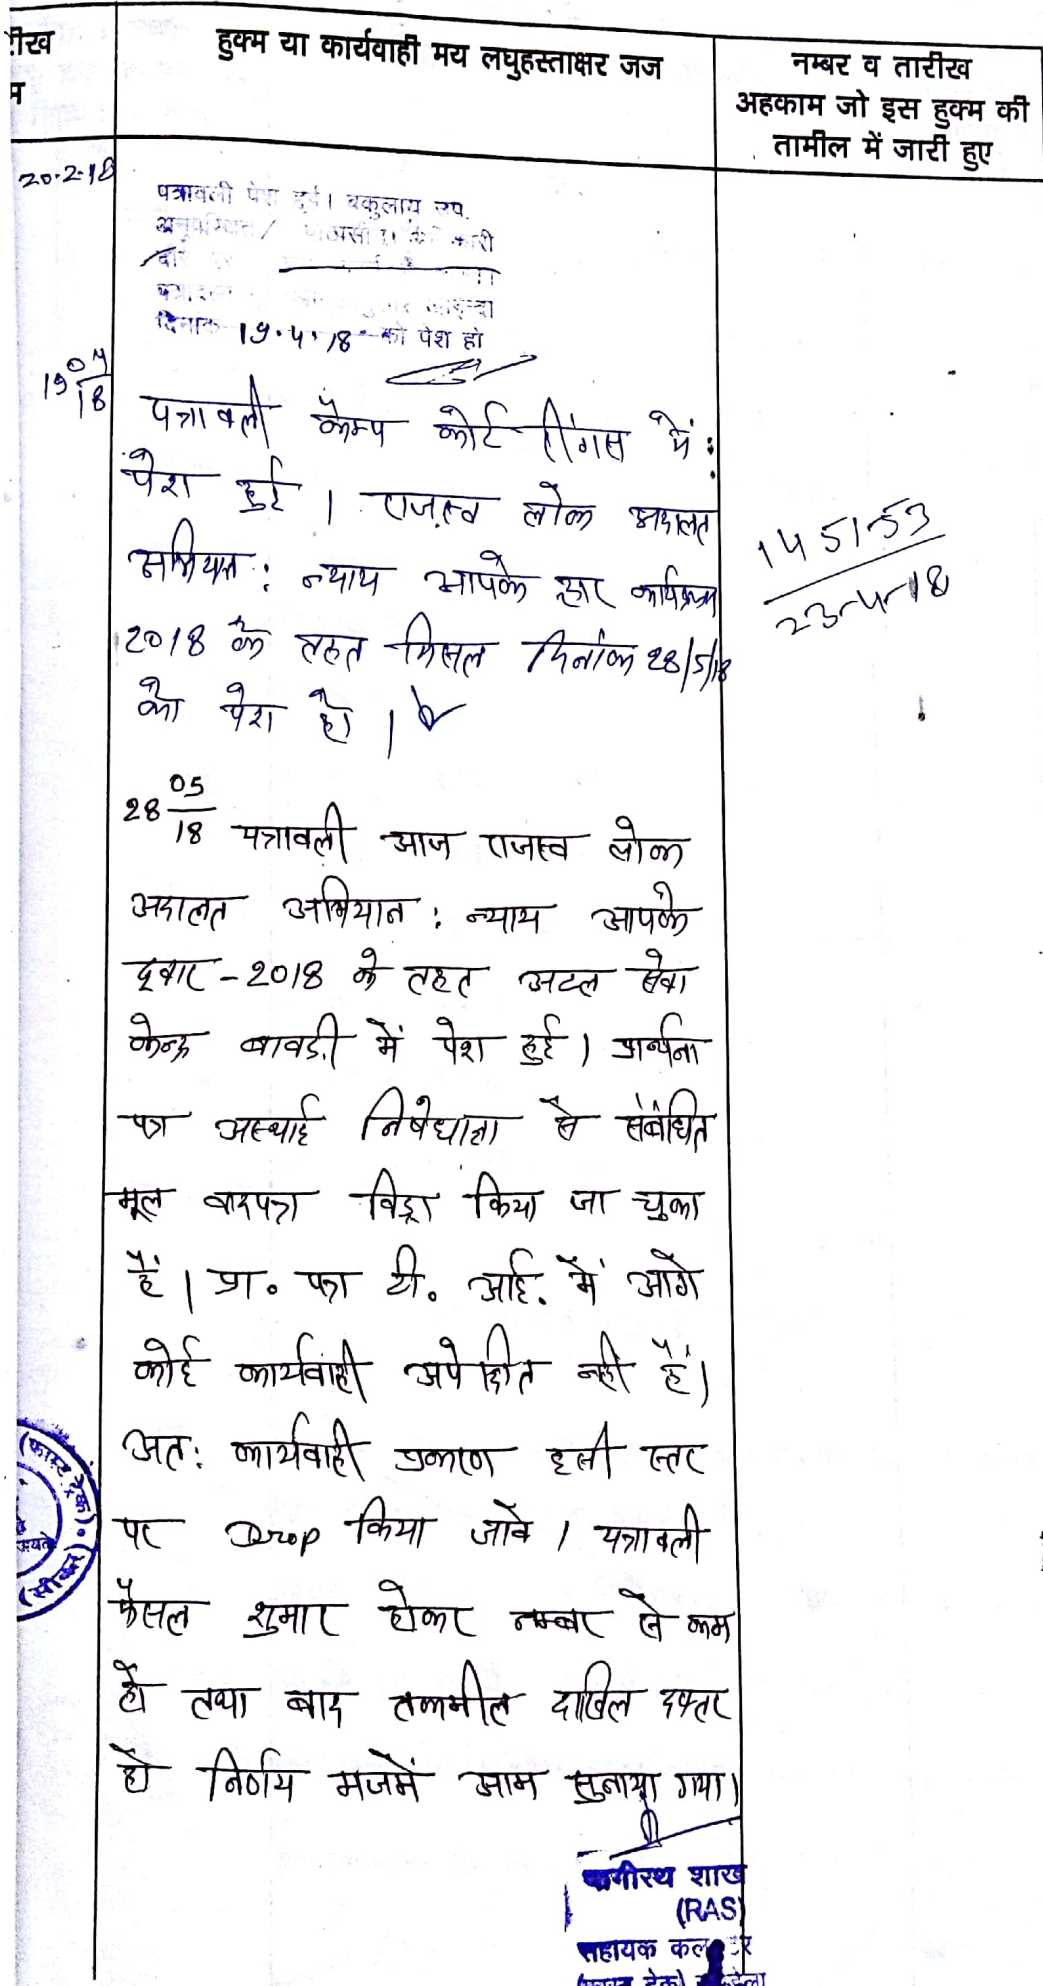 रीख
म
हुक्म या कार्यवाही मय लघुहस्ताक्षर जज
नम्बर व तारीख
अहकाम जो इस हुक्म की
तामील में जारी हुए
20.2.18
पत्रावली पेश हुई। वकुलाय उप.
अनुपस्थित /
दिनांक 19.4.18 को पेश हो
19 04/18
पत्रावली कैम्प कोर्ट रींगस में
पेश हुई । राजस्व लोक अदालत
अभियान: न्याय आपके द्वार कार्यक्रम
2018 के तहत मिसल दिनांक 28/5/18
को पेश हो ।
145153
23-4-18
28 05/18 पत्रावली आज राजस्व लोक
अदालत अभियान: न्याय आपके
द्वार - 2018 के तहत अटल सेवा
केन्द्र बावड़ी में पेश हुई । प्रार्थना
पत्र अस्थाई निषेधाज्ञा से संबंधित
मूल वादपत्र विड्रा किया जा चुका
हैं । प्रा. पत्र टी. आई. में आगे
कोई कार्यवाही अपेक्षित नहीं हैं।
अत: कार्यवाही प्रकरण इसी स्तर
पर Drop किया जावे । पत्रावली
फैसल शुमार होकर नम्बर से कम
हो तथा बाद तकमील दाखिल दफ्तर
हो निर्णय मजमें आम सुनाया गया।
(फास्ट ट्रेक)
(सीकर)
शाख
(RAS)
सहायक